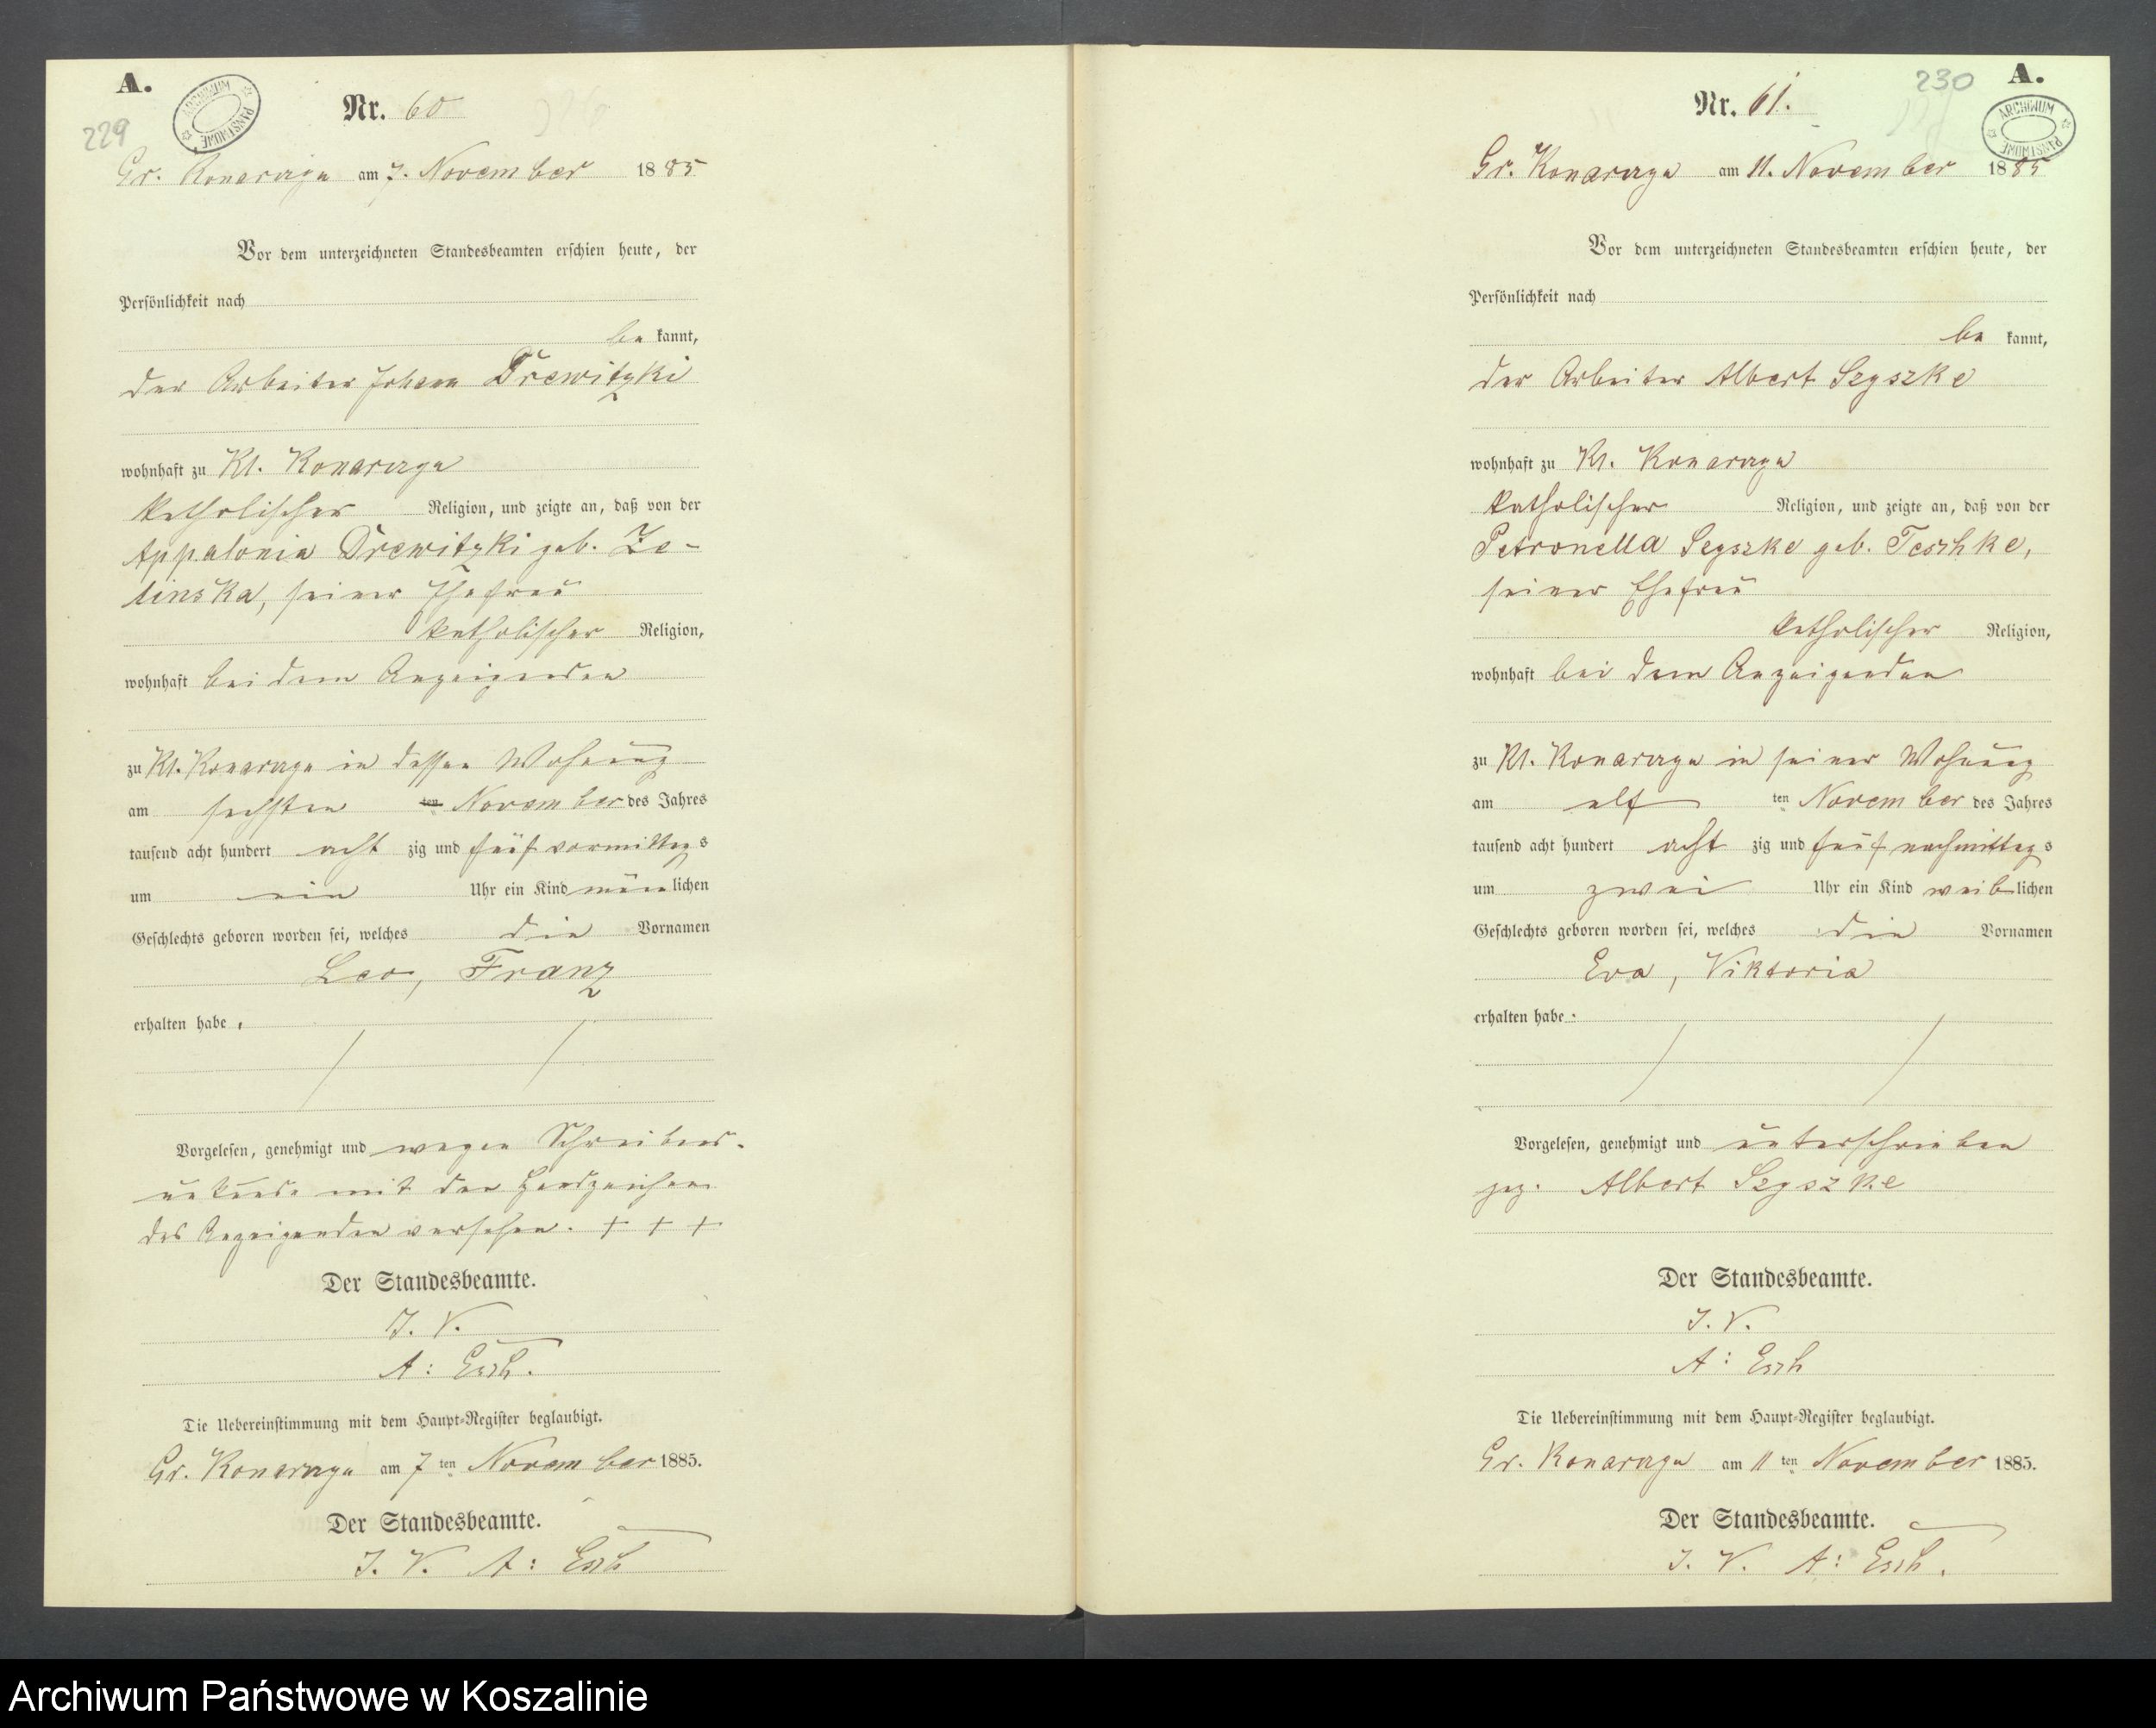 A.
229
ARCHIWUM PAŃSTWOWE
Nr. 60
Gr. Konarczyn am 7. November 1885
Vor dem unterzeichneten Standesbeamten erschien heute, der
Persönlichkeit nach
be kannt,
der Arbeiter Johann Drewitzki
wohnhaft zu Kl. Konarczyn
katholischer Religion, und zeigte an, daß von der
Appalonia Drewitzki geb. Ze-
linska, seiner Ehefrau
katholischer Religion,
wohnhaft bei dem Anzeigenden
zu Kl. Konarczyn in dessen Wohnung
am sechsten ten November des Jahres
tausend acht hundert acht zig und fünf vormittags
um ein Uhr ein Kind männlichen
Geschlechts geboren worden sei, welches die Vornamen
Leo, Franz
erhalten habe.
Vorgelesen, genehmigt und wegen Schreibens-
unkunde mit den Handzeichen
des Anzeigenden versehen. + + +
Der Standesbeamte.
J. V.
A: Esch.
Die Uebereinstimmung mit dem Haupt-Register beglaubigt.
Gr. Konarczyn am 7 ten November 1885.
Der Standesbeamte.
J. V. A: Esch
230 A.
ARCHIWUM PAŃSTWOWE
Nr. 61.
Gr. Konarczyn am 11. November 1885
Vor dem unterzeichneten Standesbeamten erschien heute, der
Persönlichkeit nach
be kannt,
der Arbeiter Albert Szyszke
wohnhaft zu Kl. Konarczyn
katholischer Religion, und zeigte an, daß von der
Petronella Szyszke geb. Teschke,
seiner Ehefrau
katholischer Religion,
wohnhaft bei dem Anzeigenden
zu Kl. Konarczyn in seiner Wohnung
am elf ten November des Jahres
tausend acht hundert acht zig und fünf nachmittags
um zwei Uhr ein Kind weiblichen
Geschlechts geboren worden sei, welches die Vornamen
Eva, Viktoria
erhalten habe.
Vorgelesen, genehmigt und unterschrieben
gez. Albert Szyszke
Der Standesbeamte.
J. V.
A: Esch
Die Uebereinstimmung mit dem Haupt-Register beglaubigt.
Gr. Konarczyn am 11 ten November 1885.
Der Standesbeamte.
J. V. A: Esch.
Archiwum Państwowe w Koszalinie